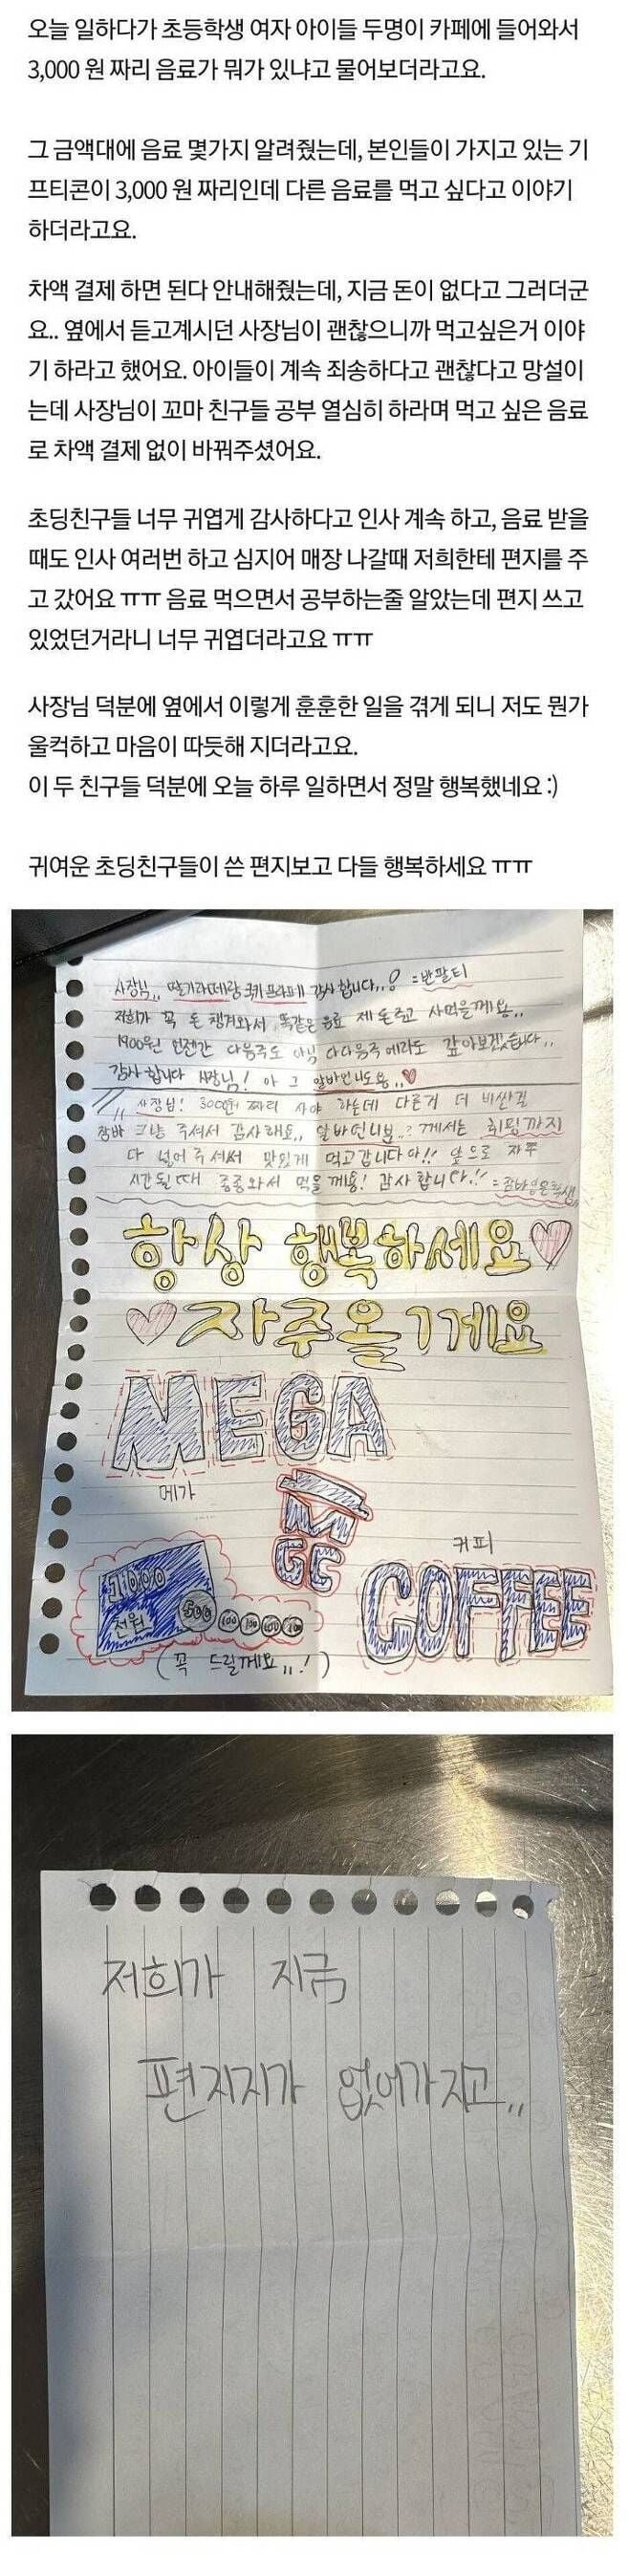 오늘 일하다가 초등학생 여자 아이들 두명이 카페에 들어와서
3,000 원 짜리 음료가 뭐가 있냐고 물어보더라고요.
그 금액대에 음료 몇가지 알려줬는데, 본인들이 가지고 있는 기
프티콘이 3,000 원 짜리인데 다른 음료를 먹고 싶다고 이야기
하더라고요.
차액 결제 하면 된다 안내해줬는데, 지금 돈이 없다고 그러더군
요.. 옆에서 듣고계시던 사장님이 괜찮으니까 먹고싶은거 이야
기 하라고 했어요. 아이들이 계속 죄송하다고 괜찮다고 망설이
는데 사장님이 꼬마 친구들 공부 열심히 하라며 먹고 싶은 음료
로 차액 결제 없이 바꿔주셨어요.
초딩친구들 너무 귀엽게 감사하다고 인사 계속 하고, 음료 받을
때도 인사 여러번 하고 심지어 매장 나갈때 저희한테 편지를 주
고 갔어요 ㅠㅠ 음료 먹으면서 공부하는줄 알았는데 편지 쓰고
있었던거라니 너무 귀엽더라고요 ㅠㅠ
사장님 덕분에 옆에서 이렇게 훈훈한 일을 겪게 되니 저도 뭔가
울컥하고 마음이 따듯해 지더라고요.
이 두 친구들 덕분에 오늘 하루 일하면서 정말 행복했네요 :)
귀여운 초딩친구들이 쓴 편지보고 다들 행복하세요 ㅠㅠ
사장님,, 딸기라떼랑 쿠키프라페 감사합니다..! =반팔티
저희가 꼭 돈 챙겨와서 똑같은 음료 제 돈주고 사먹을께요..
1900원 언젠간 다음주도 아님 다다음주에라도 갚아보겠습니다..
감사합니다 사장님! 아 그 알바언니도용..♥
사장님! 3000원 짜리 사야 하는데 다른거 더 비싼걸
그냥 주셔서 감사해요,, 알바언니분..? 께서는 휘핑까지
다 넣어주셔서 맛있게 먹고갑니다아!! 앞으로 자주
시간될때 종종와서 먹을께용! 감사합니다!!
항상 행복하세요♡
♡자주올게요
MEGA
메가
M
GC
커피
COFFEE
1000
천원
500
100
(꼭 드릴께요,,!)
저희가 지금
편지지가 없어가지고,,